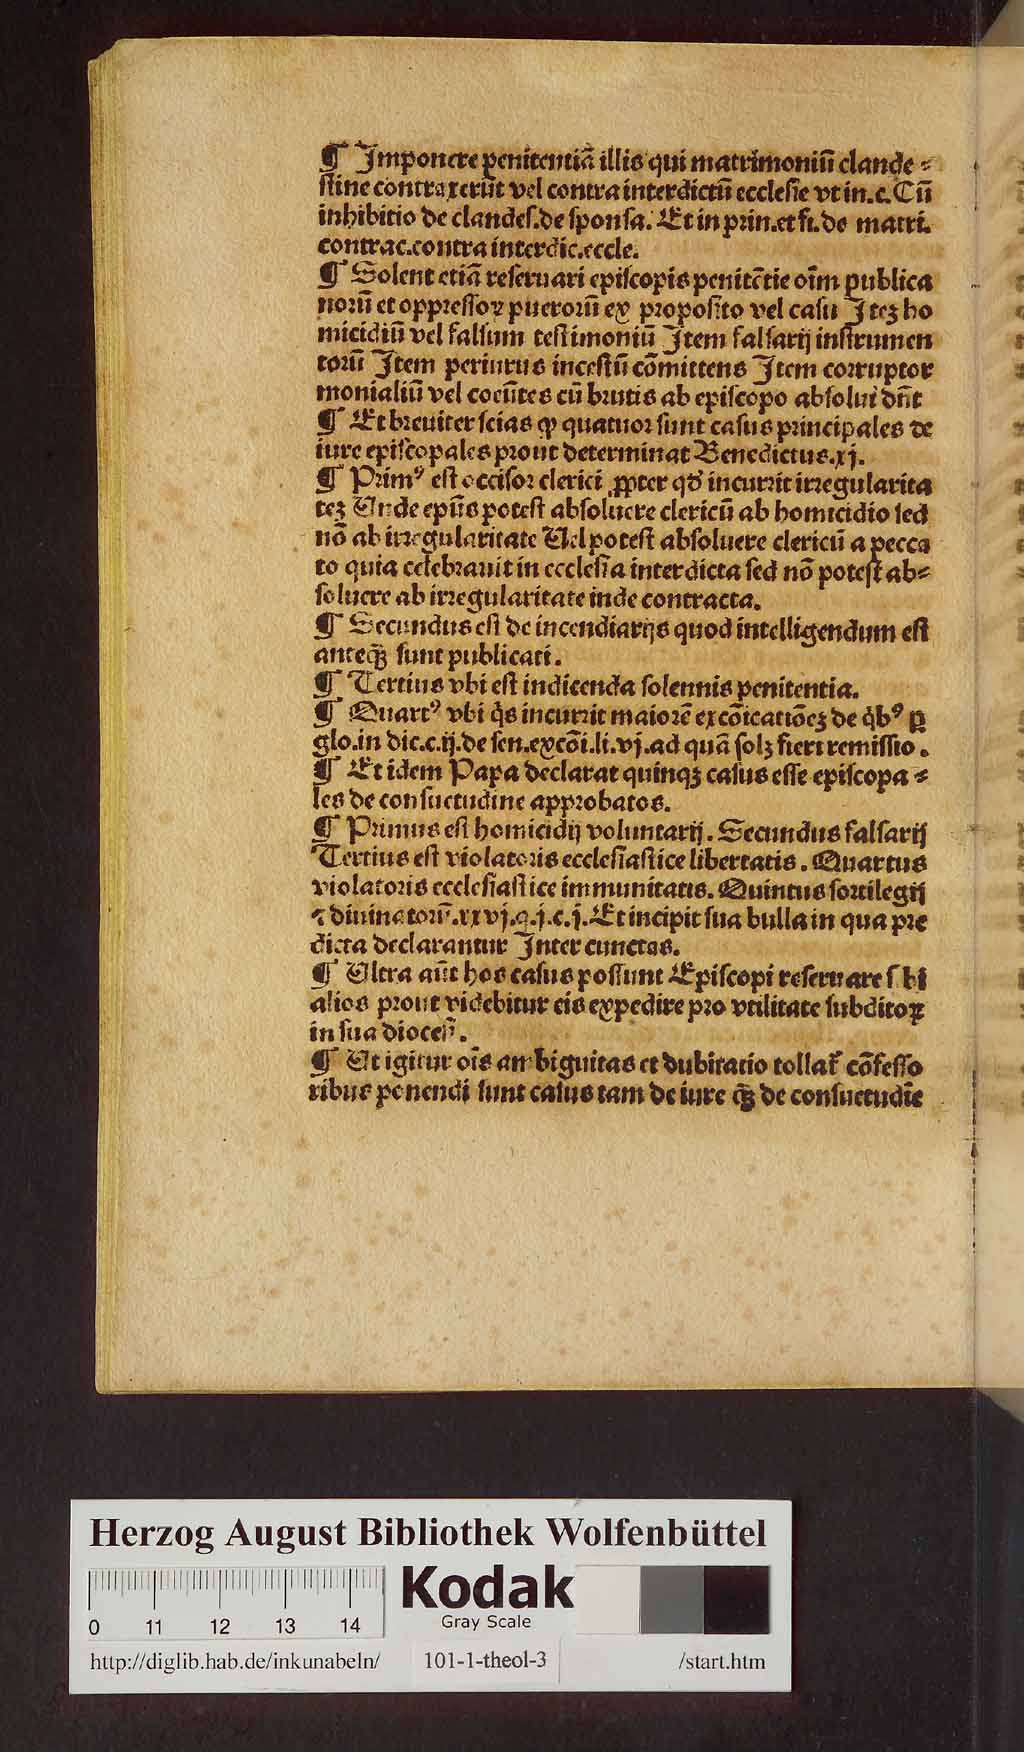 ¶ Imponere penitentiā illis qui matrimoniū clande⸗
ſtine contraxerūt vel contra interdictū eccleſie vt in.c.Cū
inhibitio de clandeſ.de ſponſa. Et in prin.et fi.de matri.
contrac.contra interdic.eccle.
¶ Solent etiā reſeruari epiſcopis penitētie oīm publica
norū et oppreſſoꝝ puerorū ex propoſito vel caſu Iteꝫ ho
micidiū vel falſum teſtimoniū Item falſarij inſtrumen
torū Item periurus inceſtū cōmittens Item corruptor
monialiū vel coeūtes cū brutis ab epiſcopo abſolui dn̄t
¶ Et breuiter ſcias ꝙ quatuor ſunt caſus principales de
iure epiſcopales prout determinat Benedictus.xj.
¶ Primꝰ eſt occiſor clerici ꝓpter qd̓ incurrit irregularita
teꝫ Unde ep̄us poteſt abſoluere clericū ab homicidio ſed
nō ab irregularitate Uel poteſt abſoluere clericū a pecca
to quia celebrauit in eccleſia interdicta ſed nō poteſt ab⸗
ſoluere ab irregularitate inde contracta.
¶ Secundus eſt de incendiarijs quod intelligendum eſt
anteqꝫ̄ ſunt publicati.
¶ Tertius vbi eſt indicenda ſolennis penitentia.
¶ Quartꝰ vbi q̇s incurrit maiorē excōicatiōeꝫ de q̇bꝰ ꝑ
glo.in dic.c.ij.de ſen.excōi.li.vj.ad quā ſolꝫ fieri remiſſio.
¶ Et idem Papa declarat quinqꝫ caſus eſſe epiſcopa⸗
les de conſuetudine approbatos.
¶ Primus eſt homicidij voluntarij. Secundus falſarij
Tertius eſt violatoris eccleſiaſtice libertatis. Quartus
violatoris eccleſiaſtice immunitatis. Quintus ſortilegij
⁊ diuinatorū.xxvj.q.j.c.j. Et incipit ſua bulla in qua pre
dicta declarantur Inter cunctas.
¶ Ultra aūt hos caſus poſſunt Epiſcopi reſeruare ſibi
alios prout videbitur eis expedire pro vtilitate ſubditoꝝ
in ſua dioceſi.
¶ Ut igitur oīs ambiguitas et dubitatio tollat᷑ cōfeſſo
ribus ponendi ſunt caſus tam de iure qꝫ̄ de conſuetudīe
Herzog August Bibliothek Wolfenbüttel
0 11 12 13 14
Kodak
Gray Scale
http://diglib.hab.de/inkunabeln/ 101-1-theol-3 /start.htm